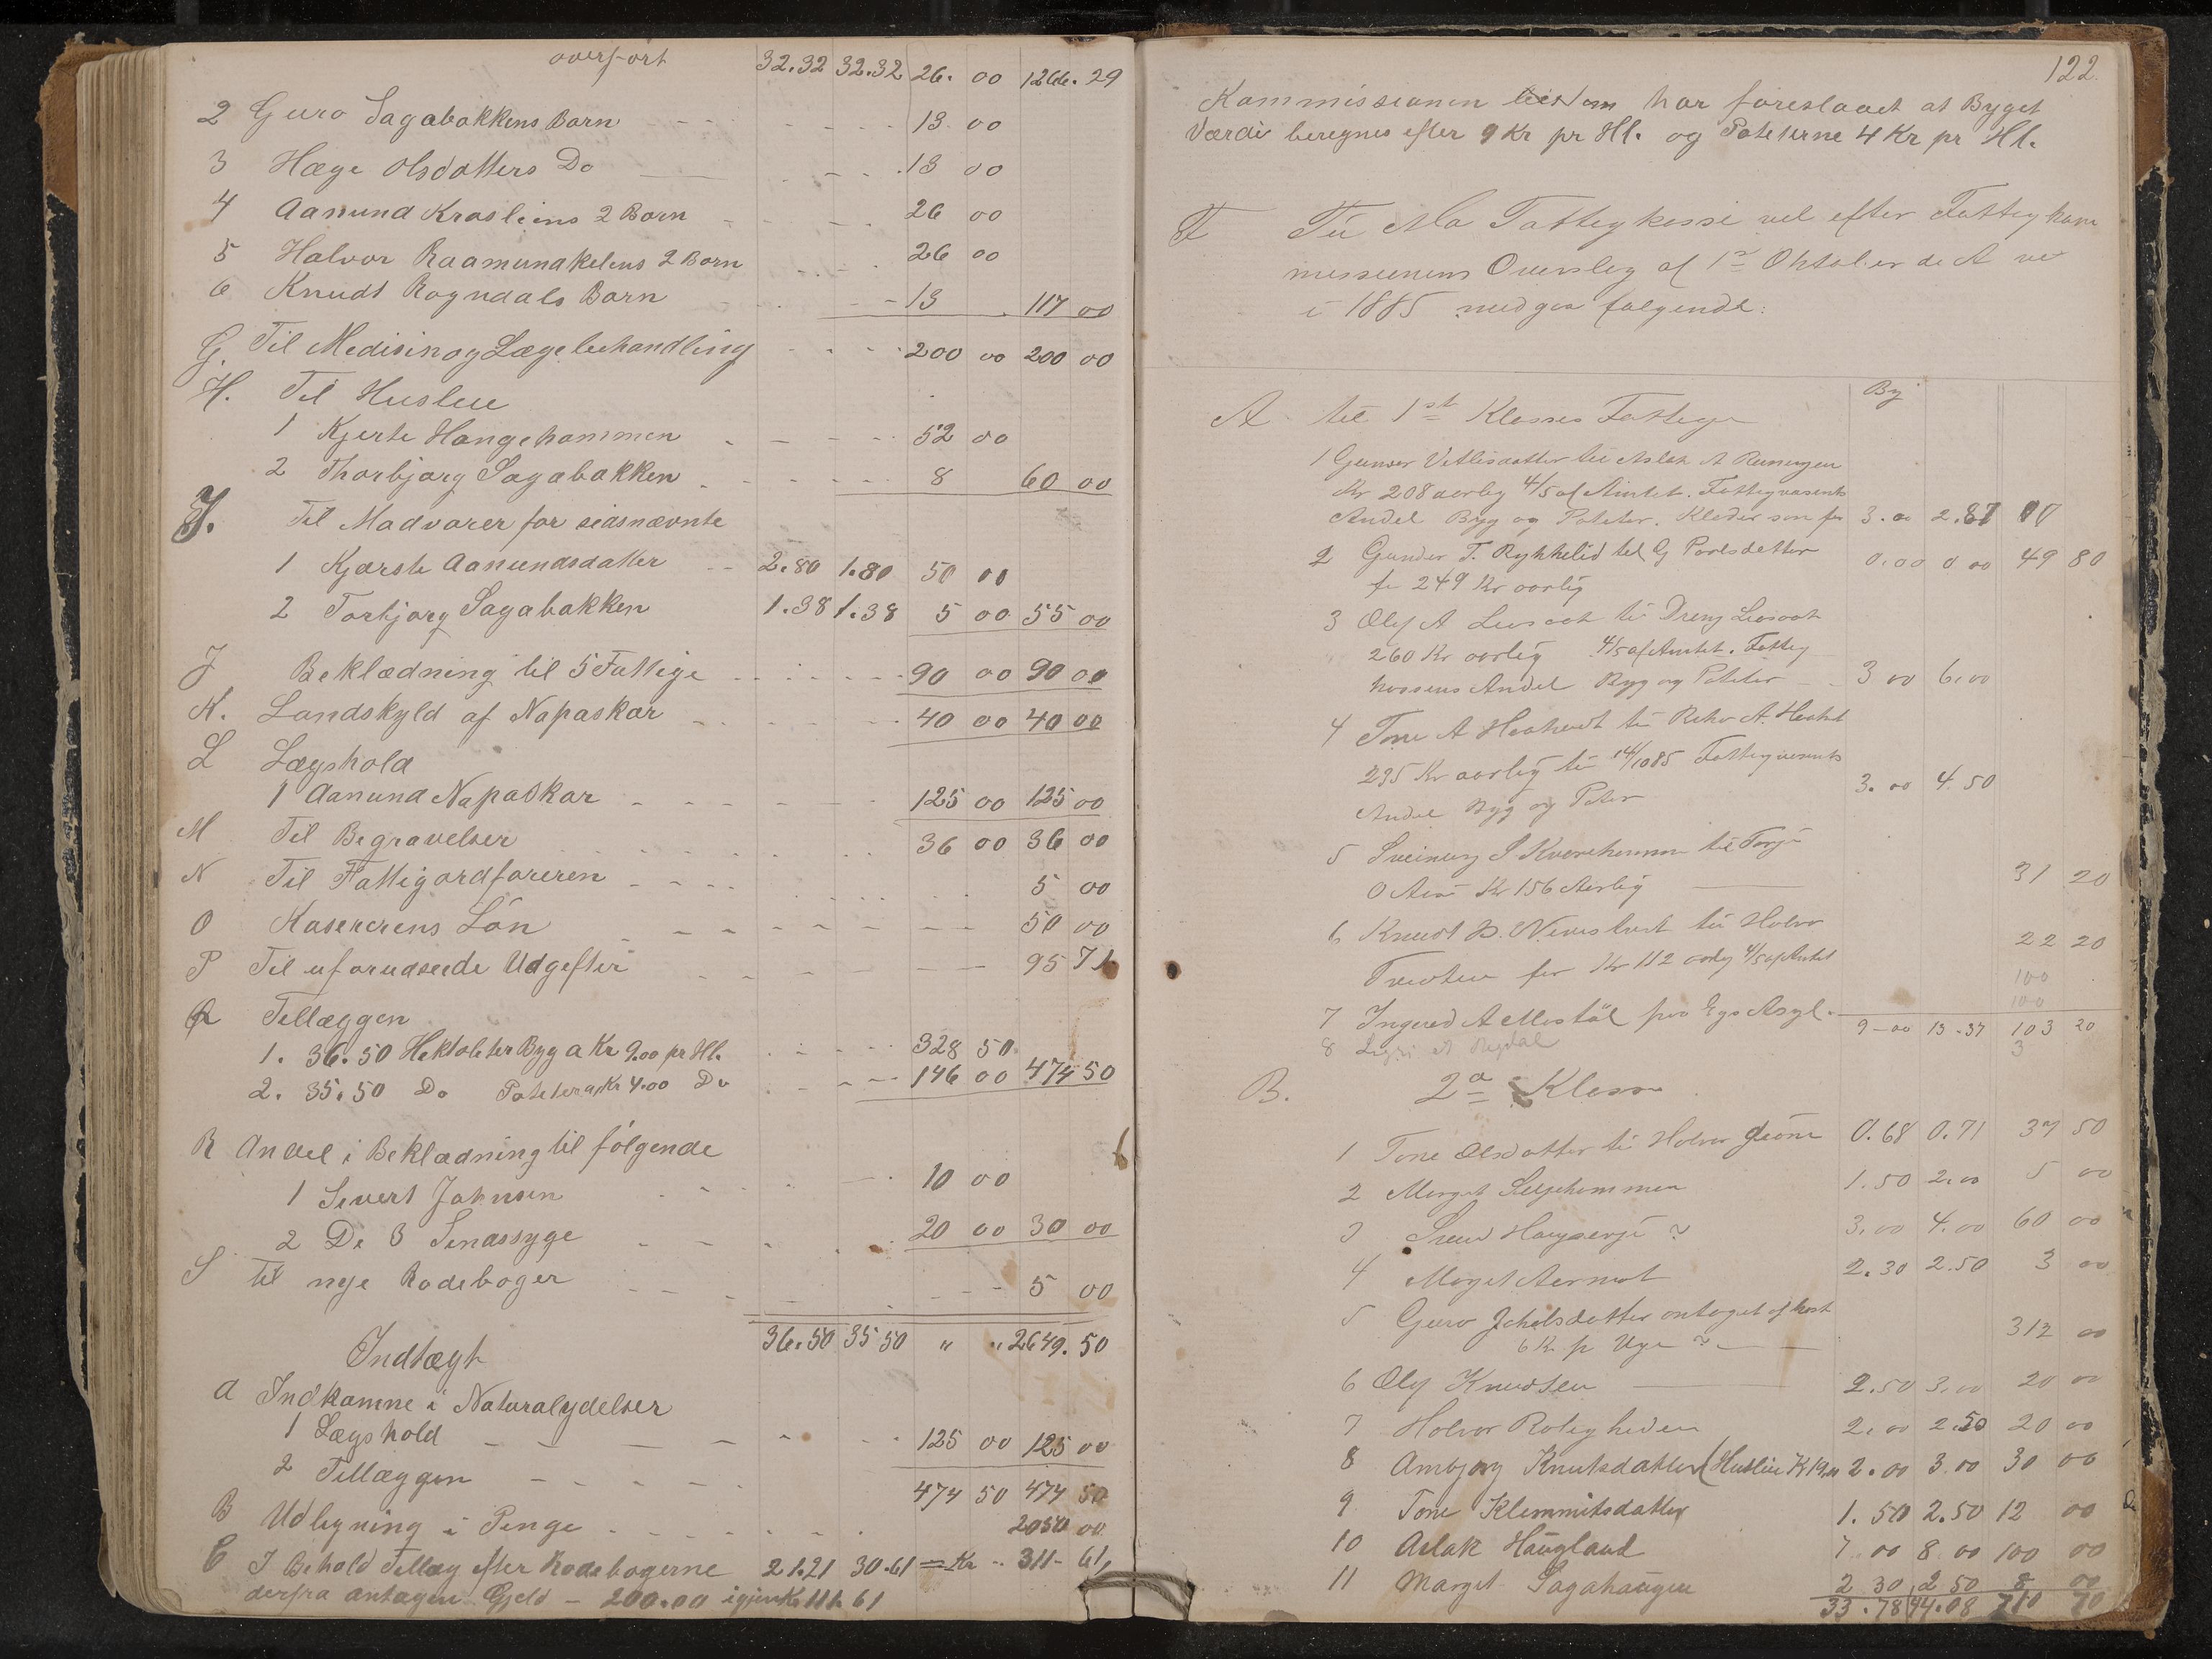 overført 32.32 32.32 26. 00 1266. 29
2 Guro Sagabakkens Barn 13 00
3 Hæge Olsdatters Do 13 00
4 Aanund Krosliens 2 Barn 26 00
5 Halvor Raamunakelens 2 Barn 26 00
6 Knudt Rogndals Barn 13 117 00
G. Til Medisin og Lægebehandling 200 00 200 00
H. Til Husleie
1 Kjerte Hangehommen 52 00
2 Thorbjørg Sagabakken 8 60 00
I. Til Madvarer for sidsnævnte
1 Kjærste Aanundsdatter 2.80 1.80 50 00
2 Torbjørg Sagabakken 1.38 1.38 5 00 55 00
J Beklædning til 5 Fattige 90 00 90 00
K. Landskyld af Napaskar 40 00 40 00
L Lægshold
1 Aanund Napaskar 125 00 125 00
M Til Begravelser 36 00 36 00
N Til Fattigordføreren 5 00
O Kasererens Løn 50 00
P Til uforudseede Udgifter 95 71
Q Tillæggen
1. 36.50 Hektoliter Byg a Kr 9.00 pr Hl. 328 50
2. 35.50 Do Poteter a Kr 4.00 Do 146 00 474 50
R Andel i Beklædning til følgende
1 Sivert Johnsen 10 00
2 De 3 Sindssyge 20 00 30 00
S til nye Rodebøger 5 00
36.50 35 50 " " 2649. 50
Indtægt
a Indkomne i Naturalydelser
1 Lægshold 125 00 125 00
2 Tillæggen 474 50 474 50
B Udligning i Penge 2050 00
C I Behold Tillæg efter Rodebøgerne 21.21 30.61 = Kr 311 - 61,
derfra antagen Gjeld - 200.00 igjen Kr 111. 61
122.
Kommissionen har foreslaaet at Byget
Værdi beregnes efter 9 Kr pr Hl. og Poteterne 4 Kr pr Hl.
Til Mo Fattigkasse vil efter Fattigkom
missionens Overslag af 1ste Oktober d. A
i 1885 medgaa følgende:
By
A til 1ste Klasses Fattige
1 Gunvor Vetlisdatter til Aslak A
Kr 208 aarlig 4/5 af Amtet. Fattigvæsenets
Andel Byg og Poteter. Klæder som før 3.00 2.87
2 Gunder T. Rykkelid til G Povlsdatter 0.00 0 00 49 80
for 249 Kr aarlig
3 Olef A til Dreng
260 Kr aarlig 4/5 af Amtet. Fattig
Andel Byg og Poteter 3 00 6.00
4 Tone A til A.
235 Kr aarlig til 14/10 85 Fattigvæsenets
Andel Byg og Poter 3.00 4.50
5 Sveinung S til Torje
O Kr 156 Aarlig 31 20
6 Knudt til Halvor 22 20
for Kr 112 aarlig 4/5 af Amtet 100
100
7 Ingerid A paa Eg Asyl. 9-00 13-37 103 20
8 3
B. 2den Klasse
1 Tone Olsdatter til Halvor 0.68 0.71 37 50
2 Marget 1.50 2.00 5 00
3 3.00 4.00 60 00
4 Marget 2.30 2.50 3 00
5 Guro antaget af
6 Kr pr Uge 312 00
6 Olef Knudsen 2.50 3.00 20 00
7 Halvor Roligheden 2.00 2.50 20 00
8 Ambjørg Knutsdatter (Huslie Kr 2.00 3.00 30 00
9 Tone Klemmitsdatter 1.50 2.50 12 00
10 Aslak Haugland 7.00 8.00 100 00
11 Marget Sagahaugen 2 30 2 50 8 00
33.78 44.08 710 70